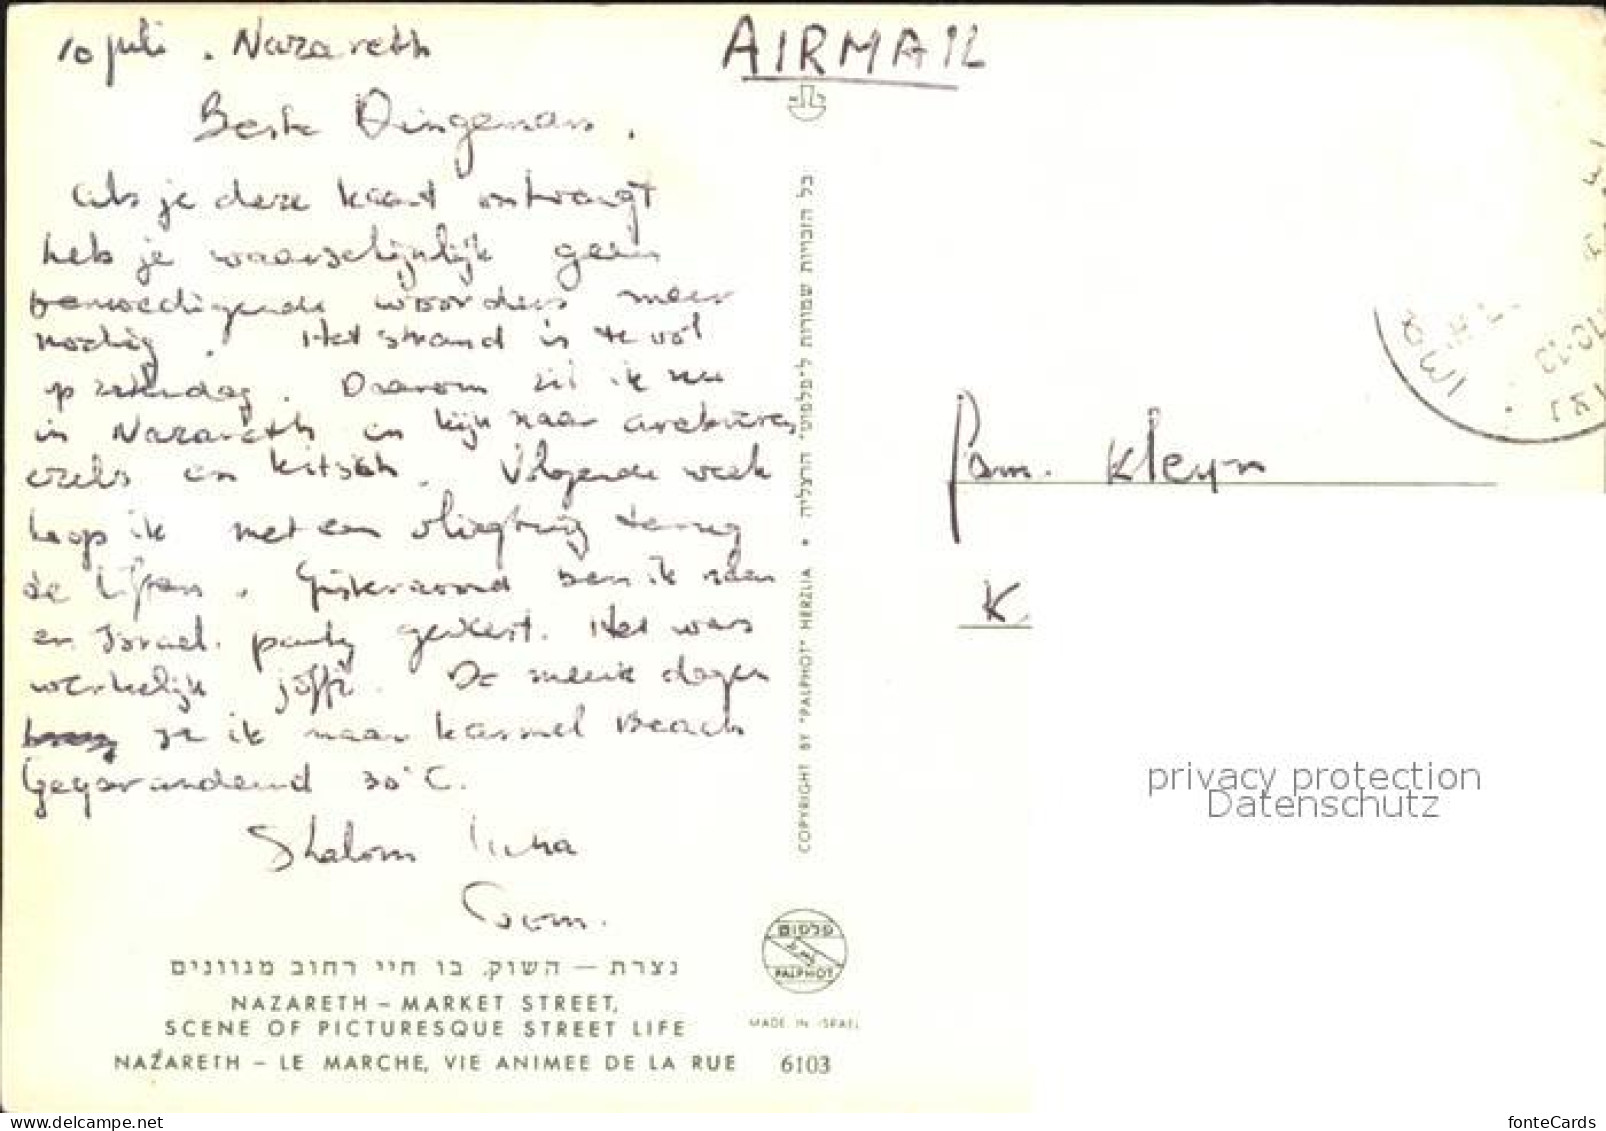 10 juli . Nazareth
AIRMAIL
Beste Dingeman,
als je deze kaart ontvangt
heb je waarschijnlijk geen
bemoedigende woorden meer
nodig. Het strand is te vol
op zaterdag. Daarom zit ik nu
in Nazareth en kijk naar arabieren
ezels en kitsch. Volgende week
hoop ik met een vliegtuig terug
te liften. Gisteravond ben ik naar
een Israel. party geweest. Het was
werkelijk joffi. De meeste dagen
ga ik naar Karmel Beach
Gegarandeerd 30°C.
Shalom
נצרת — השוק, בו חיי רחוב מגוונים
NAZARETH – MARKET STREET,
SCENE OF PICTURESQUE STREET LIFE
NAZARETH – LE MARCHE, VIE ANIMEE DE LA RUE
6103
כל הזכויות שמורות ל"פלפוט" הרצליה • COPYRIGHT BY "PALPHOT" HERZLIA
פלפוט
PALPHOT
MADE IN ISRAEL
Fam. Kleyn
K
privacy protection
Datenschutz
www.delcampe.net
fonteCards